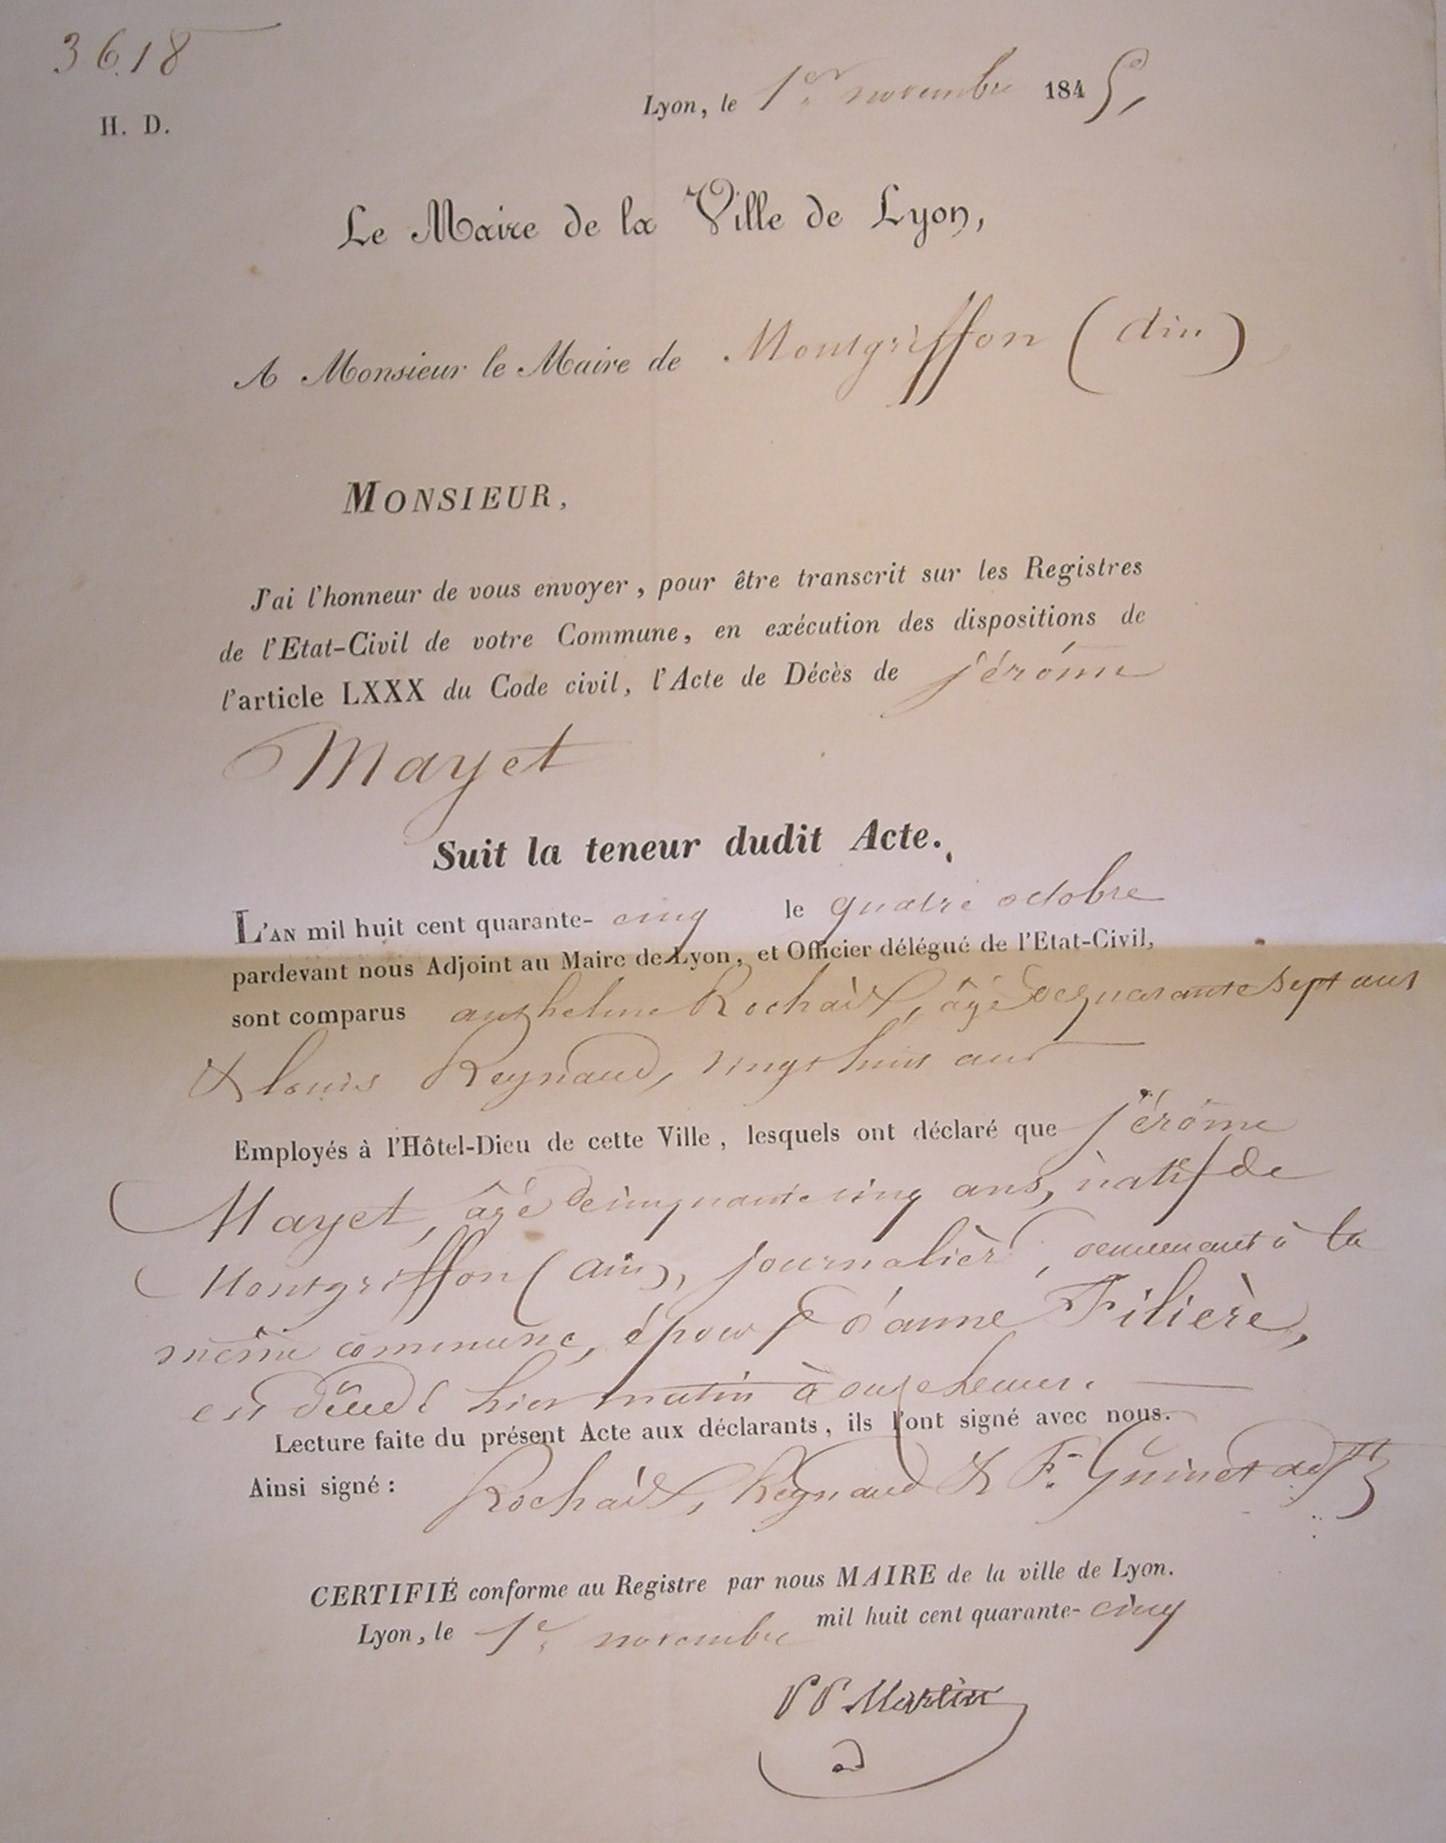 3618
H. D.
Lyon, le 1er novembre 1845,
Le Maire de la Ville de Lyon,
A Monsieur le Maire de Montgriffon (ain)
MONSIEUR,
J'ai l'honneur de vous envoyer, pour être transcrit sur les Registres
de l'Etat-Civil de votre Commune, en exécution des dispositions de
l'article LXXX du Code civil, l'Acte de Décès de jérôme
Mayet
Suit la teneur dudit Acte.
L'AN mil huit cent quarante- cinq le quatre octobre
pardevant nous Adjoint au Maire de Lyon, et Officier délégué de l'Etat-Civil,
sont comparus anthelme Rochaix, âgé de quarante sept ans
& louis Reynaud, vingt huit ans
Employés à l'Hôtel-Dieu de cette Ville, lesquels ont déclaré que jérôme
Mayet, âgé de cinquante cinq ans, natif de
Montgriffon (ain), journalier, demeurant à la
même commune, époux d'anne Filière,
est décédé hier matin à onze heures.
Lecture faite du présent Acte aux déclarants, ils l'ont signé avec nous.
Ainsi signé : Rochaix, Reynaud & F. Guinet adjt
CERTIFIÉ conforme au Registre par nous MAIRE de la ville de Lyon.
Lyon, le 1er novembre mil huit cent quarante- cinq
Martin
ad